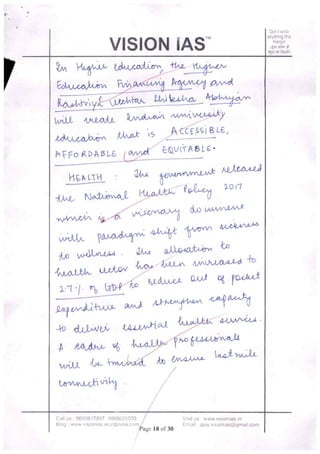 Don't write
anything this
margin
VISION IAS™
In Higher education, the Higher
Education Financing Agency and
Rashtriya Uchhtar Shiksha Abhiyan
will create Indian university
education that is ACCESSIBLE,
AFFORDABLE and EQUITABLE.
HEALTH : The government released
the National Health Policy 2017
which is a visionary document
with paradigm shift from sickness
to wellness. The allocation to
health sector has been increased to
2.7% of GDP to reduce out of pocket
expenditure and strengthen capacity
to deliver essential health services.
A cadre of health professionals
will be trained to ensure last mile
connectivity.
Visit us : www.visionias.in
Page 18 of 30